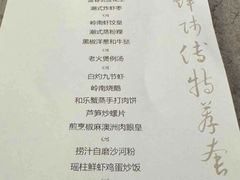 潮式炸虾枣
岭南虾饺皇
潮式蒸粉粿
黑椒洋葱和牛挞
老火煲例汤
白灼九节虾
岭南烧鹅
和乐蟹蒸手打肉饼
芦笋炒螺片
煎烹椒麻澳洲肉眼皇
捞汁自磨沙河粉
瑶柱鲜虾鸡蛋炒饭
师傅特荐套